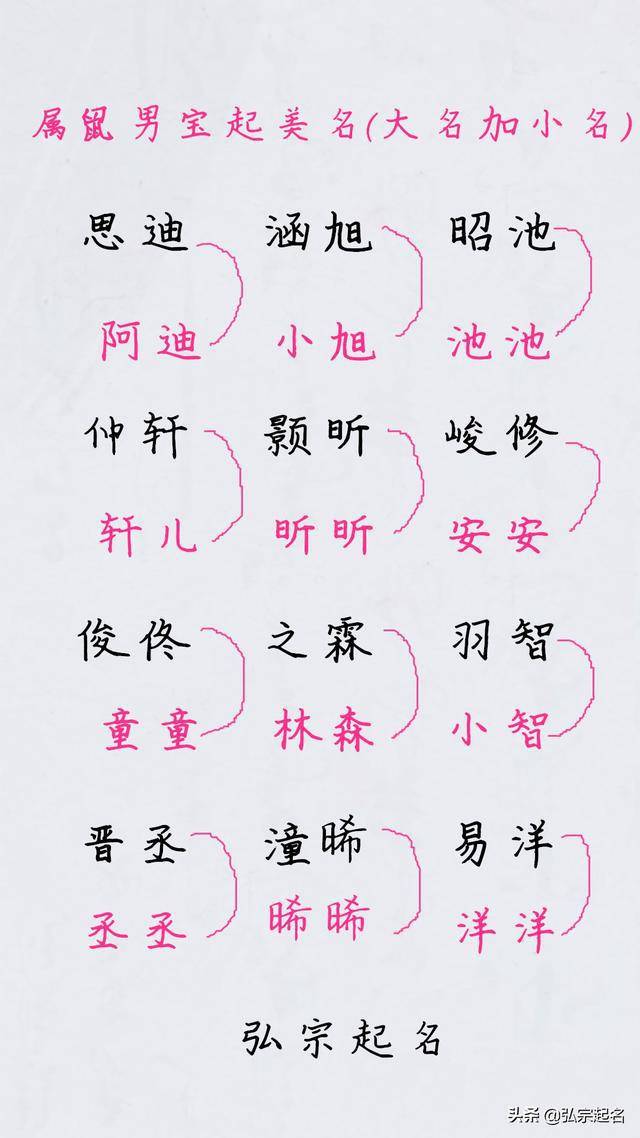 属鼠男宝起美名(大名加小名)
思迪 涵旭 昭池
阿迪 小旭 池池
仲轩 颢昕 峻修
轩儿 昕昕 安安
俊佟 之霖 羽智
童童 林森 小智
晋丞 潼晞 易洋
丞丞 晞晞 洋洋
弘宗起名
头条 @弘宗起名